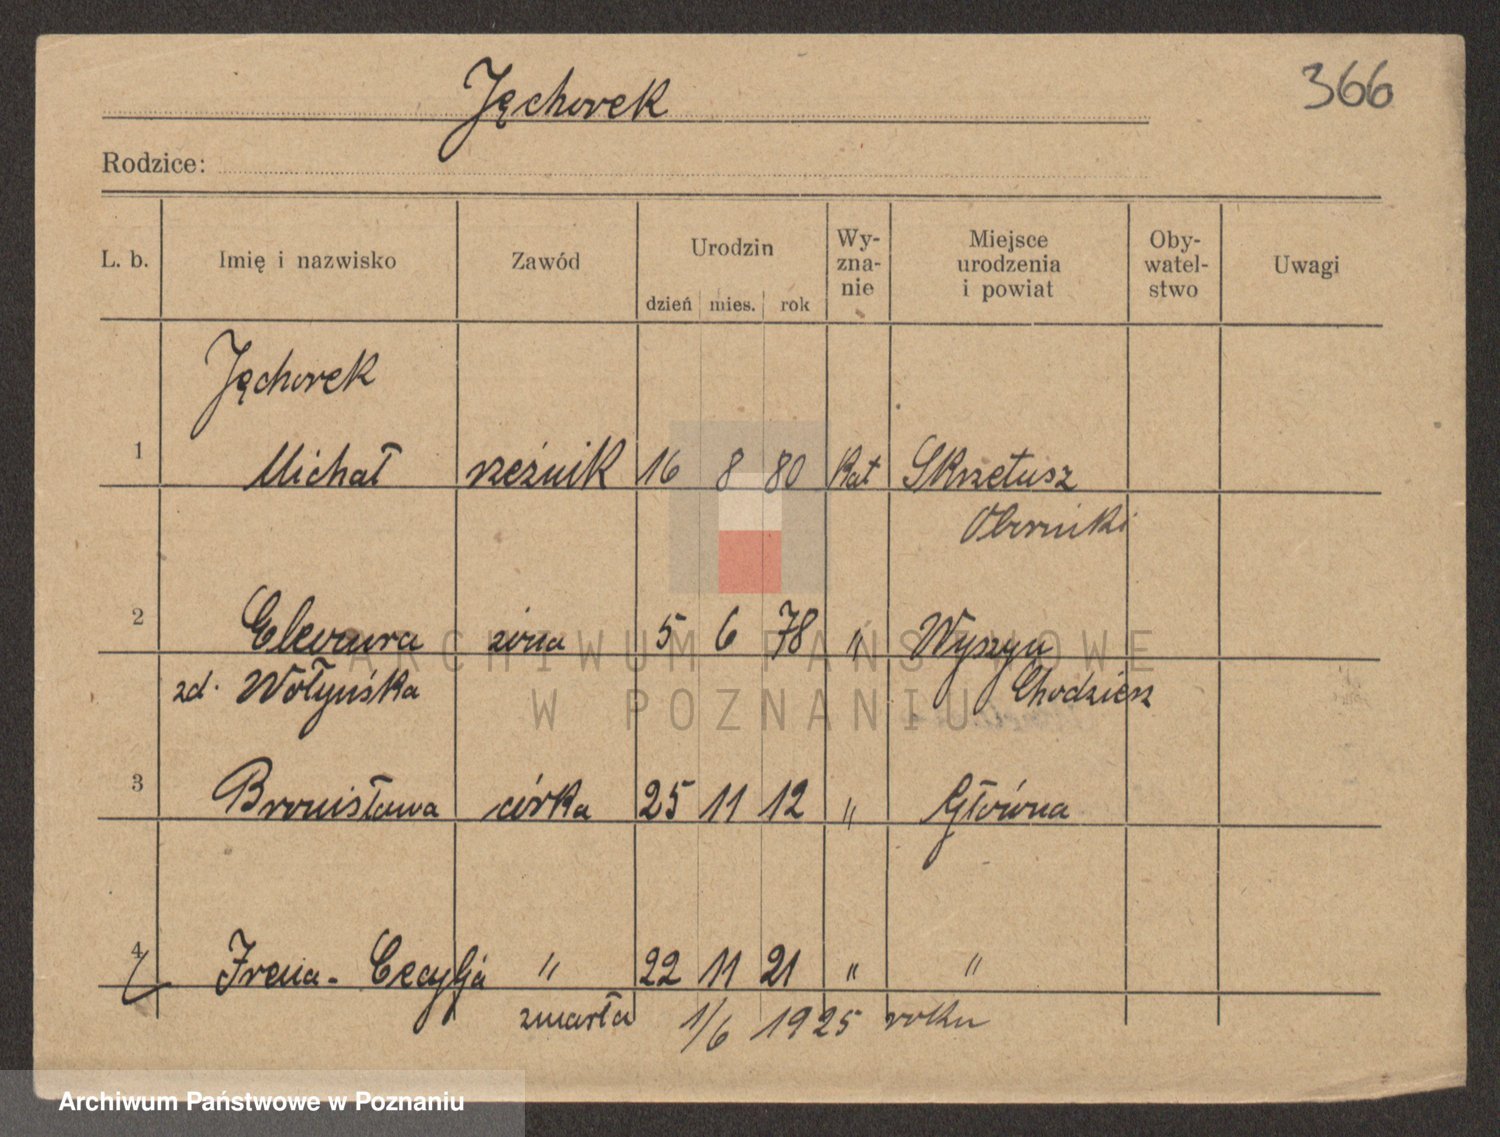 Jęchorek
366
Rodzice:
L. b. Imię i nazwisko Zawód Urodzin dzień mies. rok Wy-zna-nie Miejsce urodzenia i powiat Oby-watel-stwo Uwagi
Jęchorek
1 Michał rzeźnik 16 8 80 Kat Skrzetusz
Oborniki
2 Eleonora żona 5 6 78 " Wyszyn
zd. Wołyńska Chodzież
3 Bronisława córka 25 11 12 " Główna
4 Irena-Cecylja " 22 11 21 " "
zmarła 1/6 1925 roku
ARCHIWUM PAŃSTWOWE
W POZNANIU
Archiwum Państwowe w Poznaniu